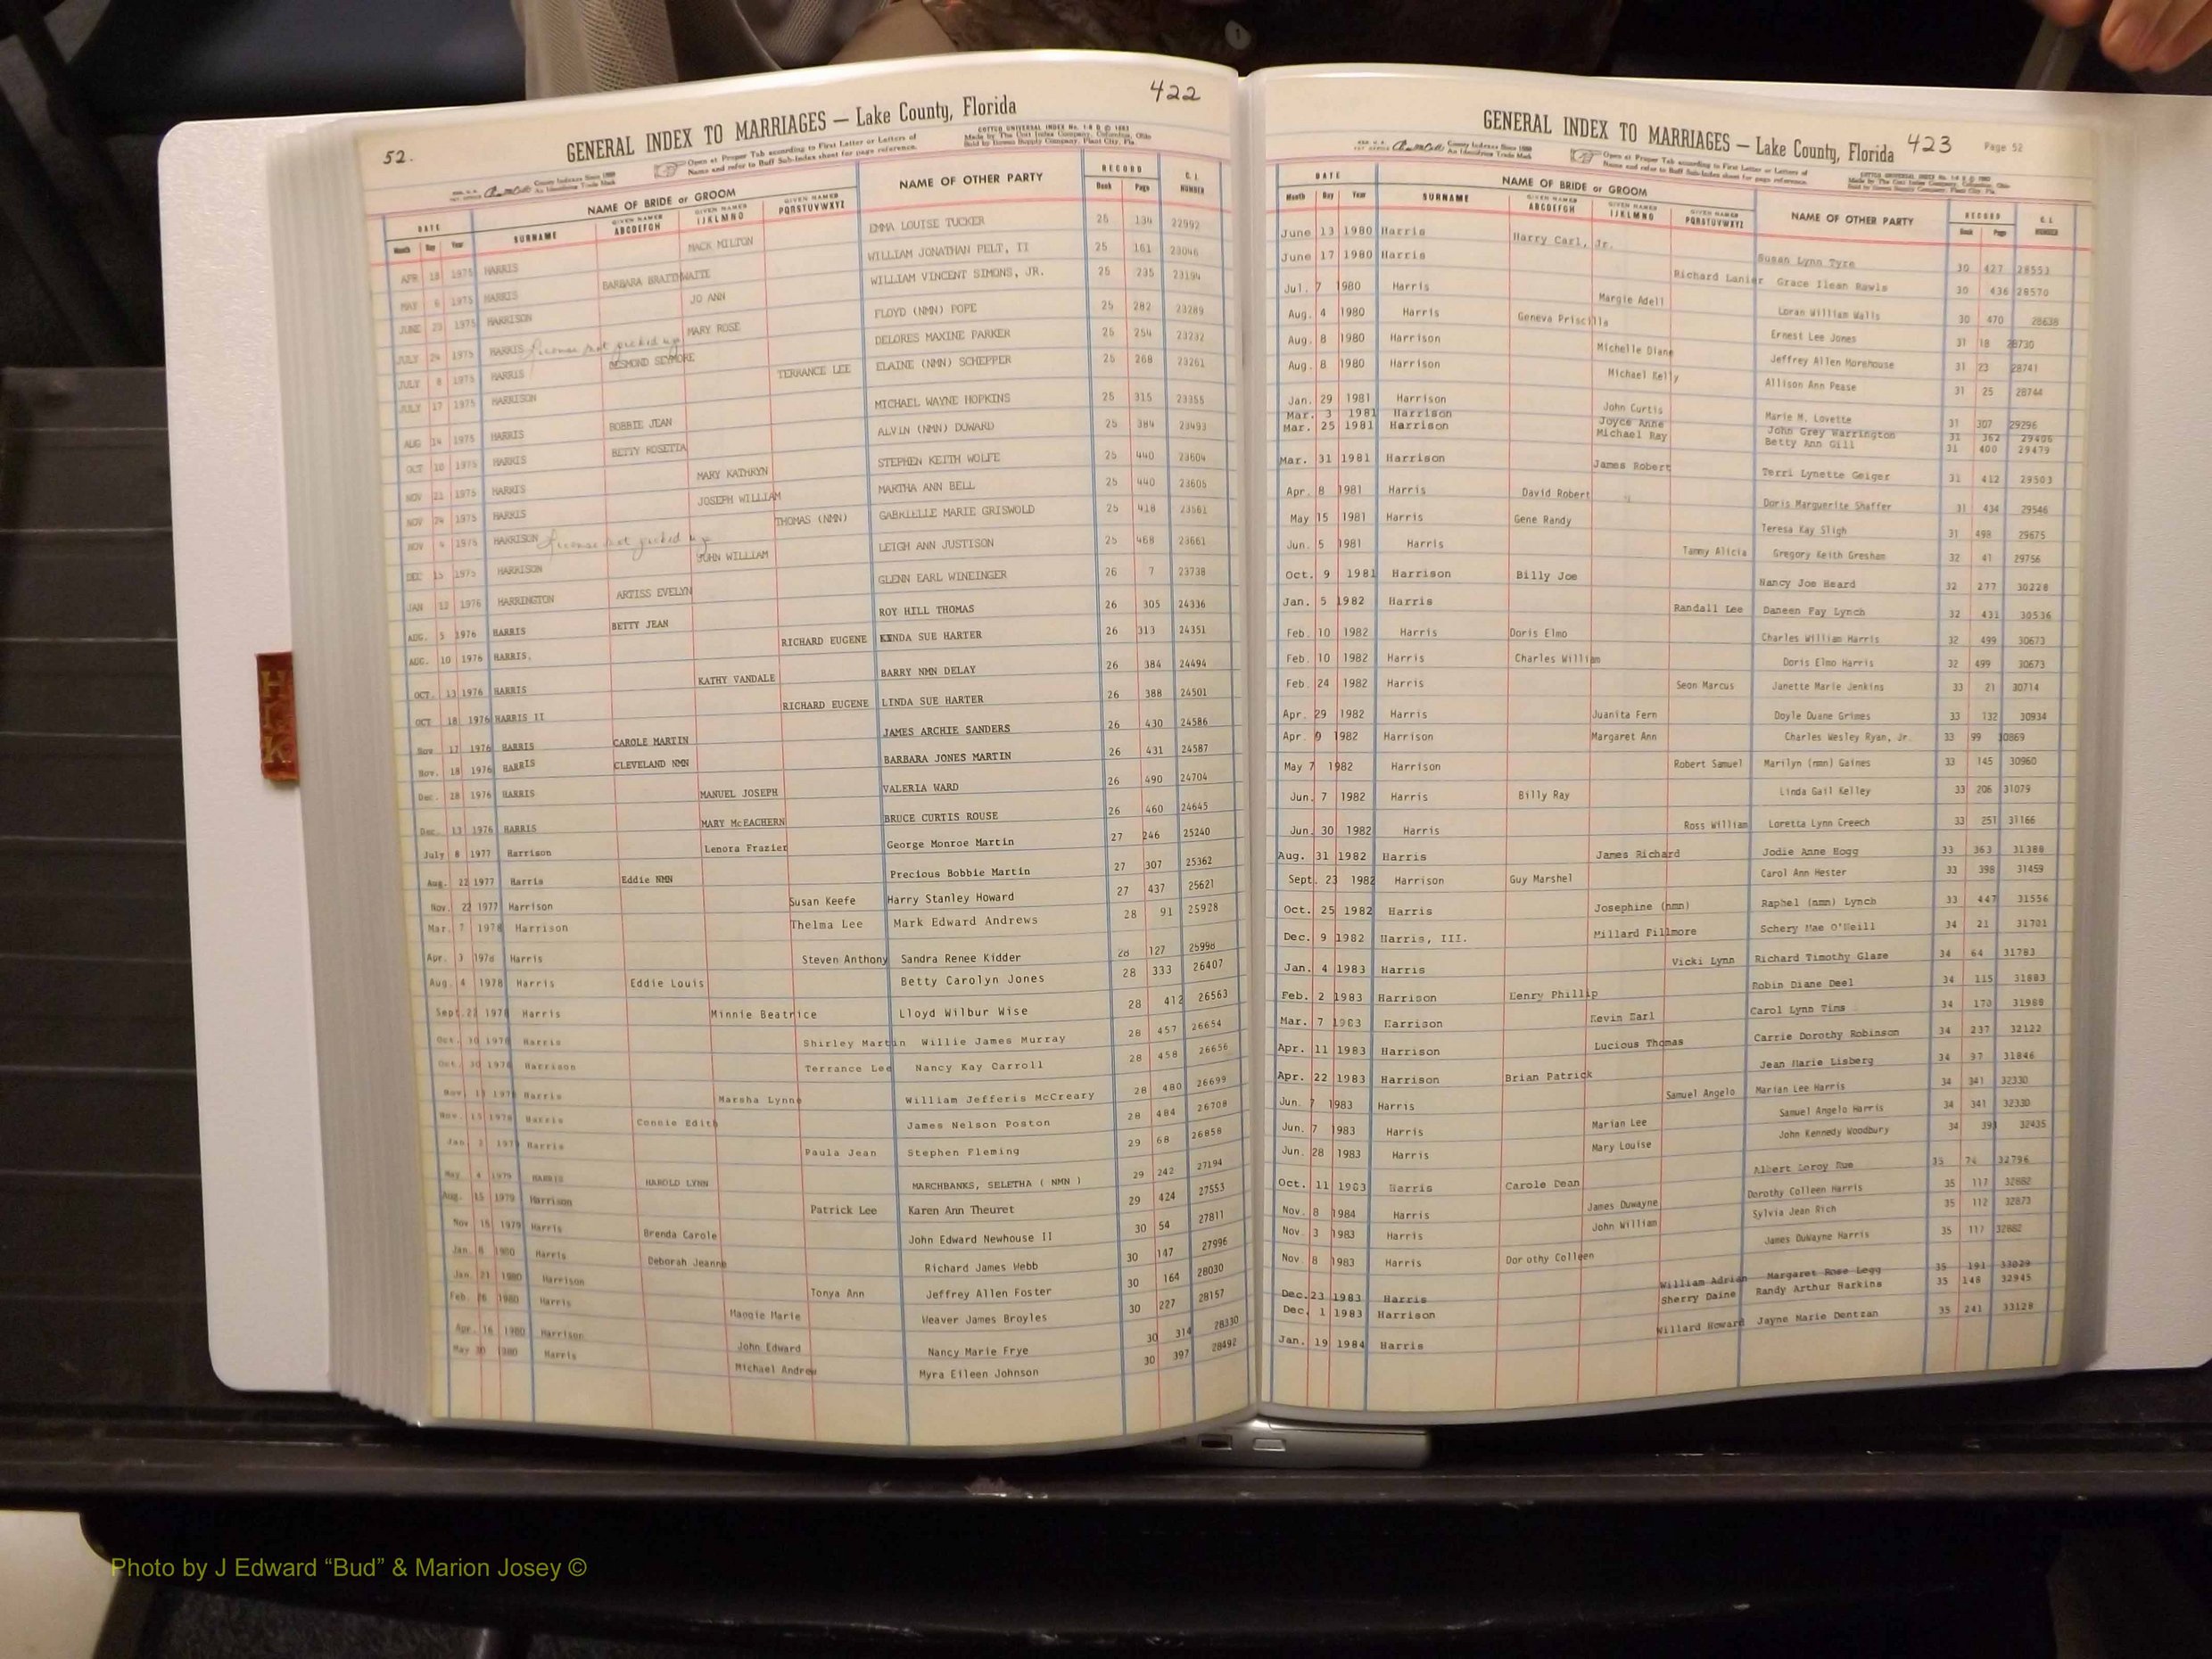 422
52.
GENERAL INDEX TO MARRIAGES — Lake County, Florida
COTTCO UNIVERSAL INDEX
Open at Proper Tab according to First Letter or Letters of
Name and refer to Buff Sub-Index sheet for page reference.
DATE NAME OF BRIDE or GROOM NAME OF OTHER PARTY RECORD C. L.
Month Day Year SURNAME GIVEN NAMES ABCDEFGH GIVEN NAMES IJKLMNO GIVEN NAMES PQRSTUVWXYZ Book Page NUMBER
APR 18 1975 HARRIS MACK MILTON EMMA LOUISE TUCKER 25 134 22992
MAY 6 1975 HARRIS BARBARA BRAITHWAITE WILLIAM JONATHAN PELT, II 25 161 23046
JUNE 23 1975 HARRISON JO ANN WILLIAM VINCENT SIMONS, JR. 25 235 23194
JULY 24 1975 HARRIS license not picked up MARY ROSE FLOYD (NMN) POPE 25 282 23289
JULY 8 1975 HARRIS DESMOND SEYMORE DELORES MAXINE PARKER 25 254 23232
JULY 17 1975 HARRISON TERRANCE LEE ELAINE (NMN) SCHEPPER 25 268 23261
AUG 14 1975 HARRIS BOBBIE JEAN MICHAEL WAYNE HOPKINS 25 315 23355
OCT 10 1975 HARRIS BETTY ROSETTA ALVIN (NMN) DUWARD 25 384 23493
NOV 21 1975 HARRIS MARY KATHRYN STEPHEN KEITH WOLFE 25 440 23604
NOV 24 1975 HARRIS JOSEPH WILLIAM MARTHA ANN BELL 25 440 23605
NOV 4 1975 HARRISON license not picked up THOMAS (NMN) GABRIELLE MARIE GRISWOLD 25 418 23561
DEC 15 1975 HARRISON JOHN WILLIAM LEIGH ANN JUSTISON 25 468 23661
JAN 12 1976 HARRINGTON ARTISS EVELYN GLENN EARL WINEINGER 26 7 23738
AUG. 5 1976 HARRIS BETTY JEAN ROY HILL THOMAS 26 305 24336
AUG. 10 1976 HARRIS. RICHARD EUGENE LINDA SUE HARTER 26 313 24351
OCT. 13 1976 HARRIS KATHY VANDALE BARRY NMN DELAY 26 384 24494
OCT 18 1976 HARRIS II RICHARD EUGENE LINDA SUE HARTER 26 388 24501
Nov 17 1976 HARRIS CAROLE MARTIN JAMES ARCHIE SANDERS 26 430 24586
Nov. 18 1976 HARRIS CLEVELAND NMN BARBARA JONES MARTIN 26 431 24587
Dec. 28 1976 HARRIS MANUEL JOSEPH VALERIA WARD 26 490 24704
Dec. 13 1976 HARRIS MARY McEACHERN BRUCE CURTIS ROUSE 26 460 24645
July 8 1977 Harrison Lenora Frazier George Monroe Martin 27 246 25240
Aug. 22 1977 Harris Eddie NMN Precious Bobbie Martin 27 307 25362
Nov. 22 1977 Harrison Susan Keefe Harry Stanley Howard 27 437 25621
Mar. 7 1978 Harrison Thelma Lee Mark Edward Andrews 28 91 25928
Apr. 3 1978 Harris Steven Anthony Sandra Renee Kidder 28 127 25998
Aug. 4 1978 Harris Eddie Louis Betty Carolyn Jones 28 333 26407
Sept. 21 1978 Harris Minnie Beatrice Lloyd Wilbur Wise 28 412 26563
Oct. 30 1978 Harris Shirley Martin Willie James Murray 28 457 26654
Oct. 30 1978 Harrison Terrance Lee Nancy Kay Carroll 28 458 26656
Nov. 13 1978 Harris Marsha Lynne William Jefferis McCreary 28 480 26699
Nov. 15 1978 Harris Connie Edith James Nelson Poston 28 484 26708
Jan 3 1979 Harris Paula Jean Stephen Fleming 29 68 26858
May 4 1979 HARRIS HAROLD LYNN MARCHBANKS, SELETHA ( NMN ) 29 242 27194
Aug. 15 1979 Harrison Patrick Lee Karen Ann Theuret 29 424 27553
Nov 16 1979 Harris Brenda Carole John Edward Newhouse II 30 54 27811
Jan. 8 1980 Harris Deborah Jeanne Richard James Webb 30 147 27996
Jan. 21 1980 Harrison Tonya Ann Jeffrey Allen Foster 30 164 28030
Feb. 26 1980 Harris Maggie Marie Weaver James Broyles 30 227 28157
Apr. 16 1980 Harrison John Edward Nancy Marie Frye 30 314 28330
May 30 1980 Harris Michael Andrew Myra Eileen Johnson 30 397 28492
GENERAL INDEX TO MARRIAGES — Lake County, Florida 423 Page 52
Open at Proper Tab according to First Letter or Letters of
Name and refer to Buff Sub-Index sheet for page reference.
DATE NAME OF BRIDE or GROOM NAME OF OTHER PARTY RECORD C. L.
Month Day Year SURNAME GIVEN NAMES ABCDEFGH GIVEN NAMES IJKLMNO GIVEN NAMES PQRSTUVWXYZ Book Page NUMBER
June 13 1980 Harris Harry Carl, Jr. Susan Lynn Tyre 30 427 28553
June 17 1980 Harris Richard Lanier Grace Ilean Rawls 30 436 28570
Jul. 7 1980 Harris Margie Adell Loran William Walls 30 470 28638
Aug. 4 1980 Harris Geneva Priscilla Ernest Lee Jones 31 18 28730
Aug. 8 1980 Harrison Michelle Diane Jeffrey Allen Morehouse 31 23 28741
Aug. 8 1980 Harrison Michael Kelly Allison Ann Pease 31 25 28744
Jan. 29 1981 Harrison John Curtis Marie M. Lovette 31 307 29296
Mar. 3 1981 Harrison Joyce Anne John Grey Warrington 31 362 29406
Mar. 25 1981 Harrison Michael Ray Betty Ann Gill 31 400 29479
Mar. 31 1981 Harrison James Robert Terri Lynette Geiger 31 412 29503
Apr. 8 1981 Harris David Robert Doris Marguerite Shaffer 31 434 29546
May 15 1981 Harris Gene Randy Teresa Kay Sligh 31 498 29675
Jun. 5 1981 Harris Tammy Alicia Gregory Keith Gresham 32 41 29756
Oct. 9 1981 Harrison Billy Joe Nancy Joe Heard 32 277 30228
Jan. 5 1982 Harris Randall Lee Daneen Fay Lynch 32 431 30536
Feb. 10 1982 Harris Doris Elmo Charles William Harris 32 499 30673
Feb. 10 1982 Harris Charles William Doris Elmo Harris 32 499 30673
Feb. 24 1982 Harris Sean Marcus Janette Marie Jenkins 33 21 30714
Apr. 29 1982 Harris Juanita Fern Doyle Duane Grimes 33 132 30934
Apr. 9 1982 Harrison Margaret Ann Charles Wesley Ryan, Jr. 33 99 30869
May 7 1982 Harrison Robert Samuel Marilyn (nmn) Gaines 33 145 30960
Jun. 7 1982 Harris Billy Ray Linda Gail Kelley 33 206 31079
Jun. 30 1982 Harris Ross William Loretta Lynn Creech 33 251 31166
Aug. 31 1982 Harris James Richard Jodie Anne Hogg 33 363 31388
Sept. 23 1982 Harrison Guy Marshel Carol Ann Hester 33 398 31459
Oct. 25 1982 Harris Josephine (nmn) Raphel (nmn) Lynch 33 447 31556
Dec. 9 1982 Harris, III. Millard Fillmore Schery Mae O'Neill 34 21 31701
Jan. 4 1983 Harris Vicki Lynn Richard Timothy Glaze 34 64 31783
Feb. 2 1983 Harrison Henry Phillip Robin Diane Deel 34 115 31883
Mar. 7 1983 Harrison Kevin Earl Carol Lynn Tims 34 170 31988
Apr. 11 1983 Harrison Lucious Thomas Carrie Dorothy Robinson 34 237 32122
Apr. 22 1983 Harrison Brian Patrick Jean Marie Lisberg 34 97 31846
Jun. 7 1983 Harris Samuel Angelo Marian Lee Harris 34 341 32330
Jun. 7 1983 Harris Marian Lee Samuel Angelo Harris 34 341 32330
Jun. 28 1983 Harris Mary Louise John Kennedy Woodbury 34 391 32435
Oct. 11 1983 Harris Carole Dean Albert Leroy Rue 35 74 32796
Nov. 8 1984 Harris James Duwayne Dorothy Colleen Harris 35 117 32882
Nov 3 1983 Harris John William Sylvia Jean Rich 35 112 32873
Nov 8 1983 Harris Dorothy Colleen James DuWayne Harris 35 117 32882
Dec. 23 1983 Harris William Adrian Margaret Rose Legg 35 191 33029
Dec. 1 1983 Harrison Sherry Daine Randy Arthur Harkins 35 148 32945
Jan. 19 1984 Harris Willard Howard Jayne Marie Dentzan 35 241 33128
H I J K
Photo by J Edward “Bud” & Marion Josey ©